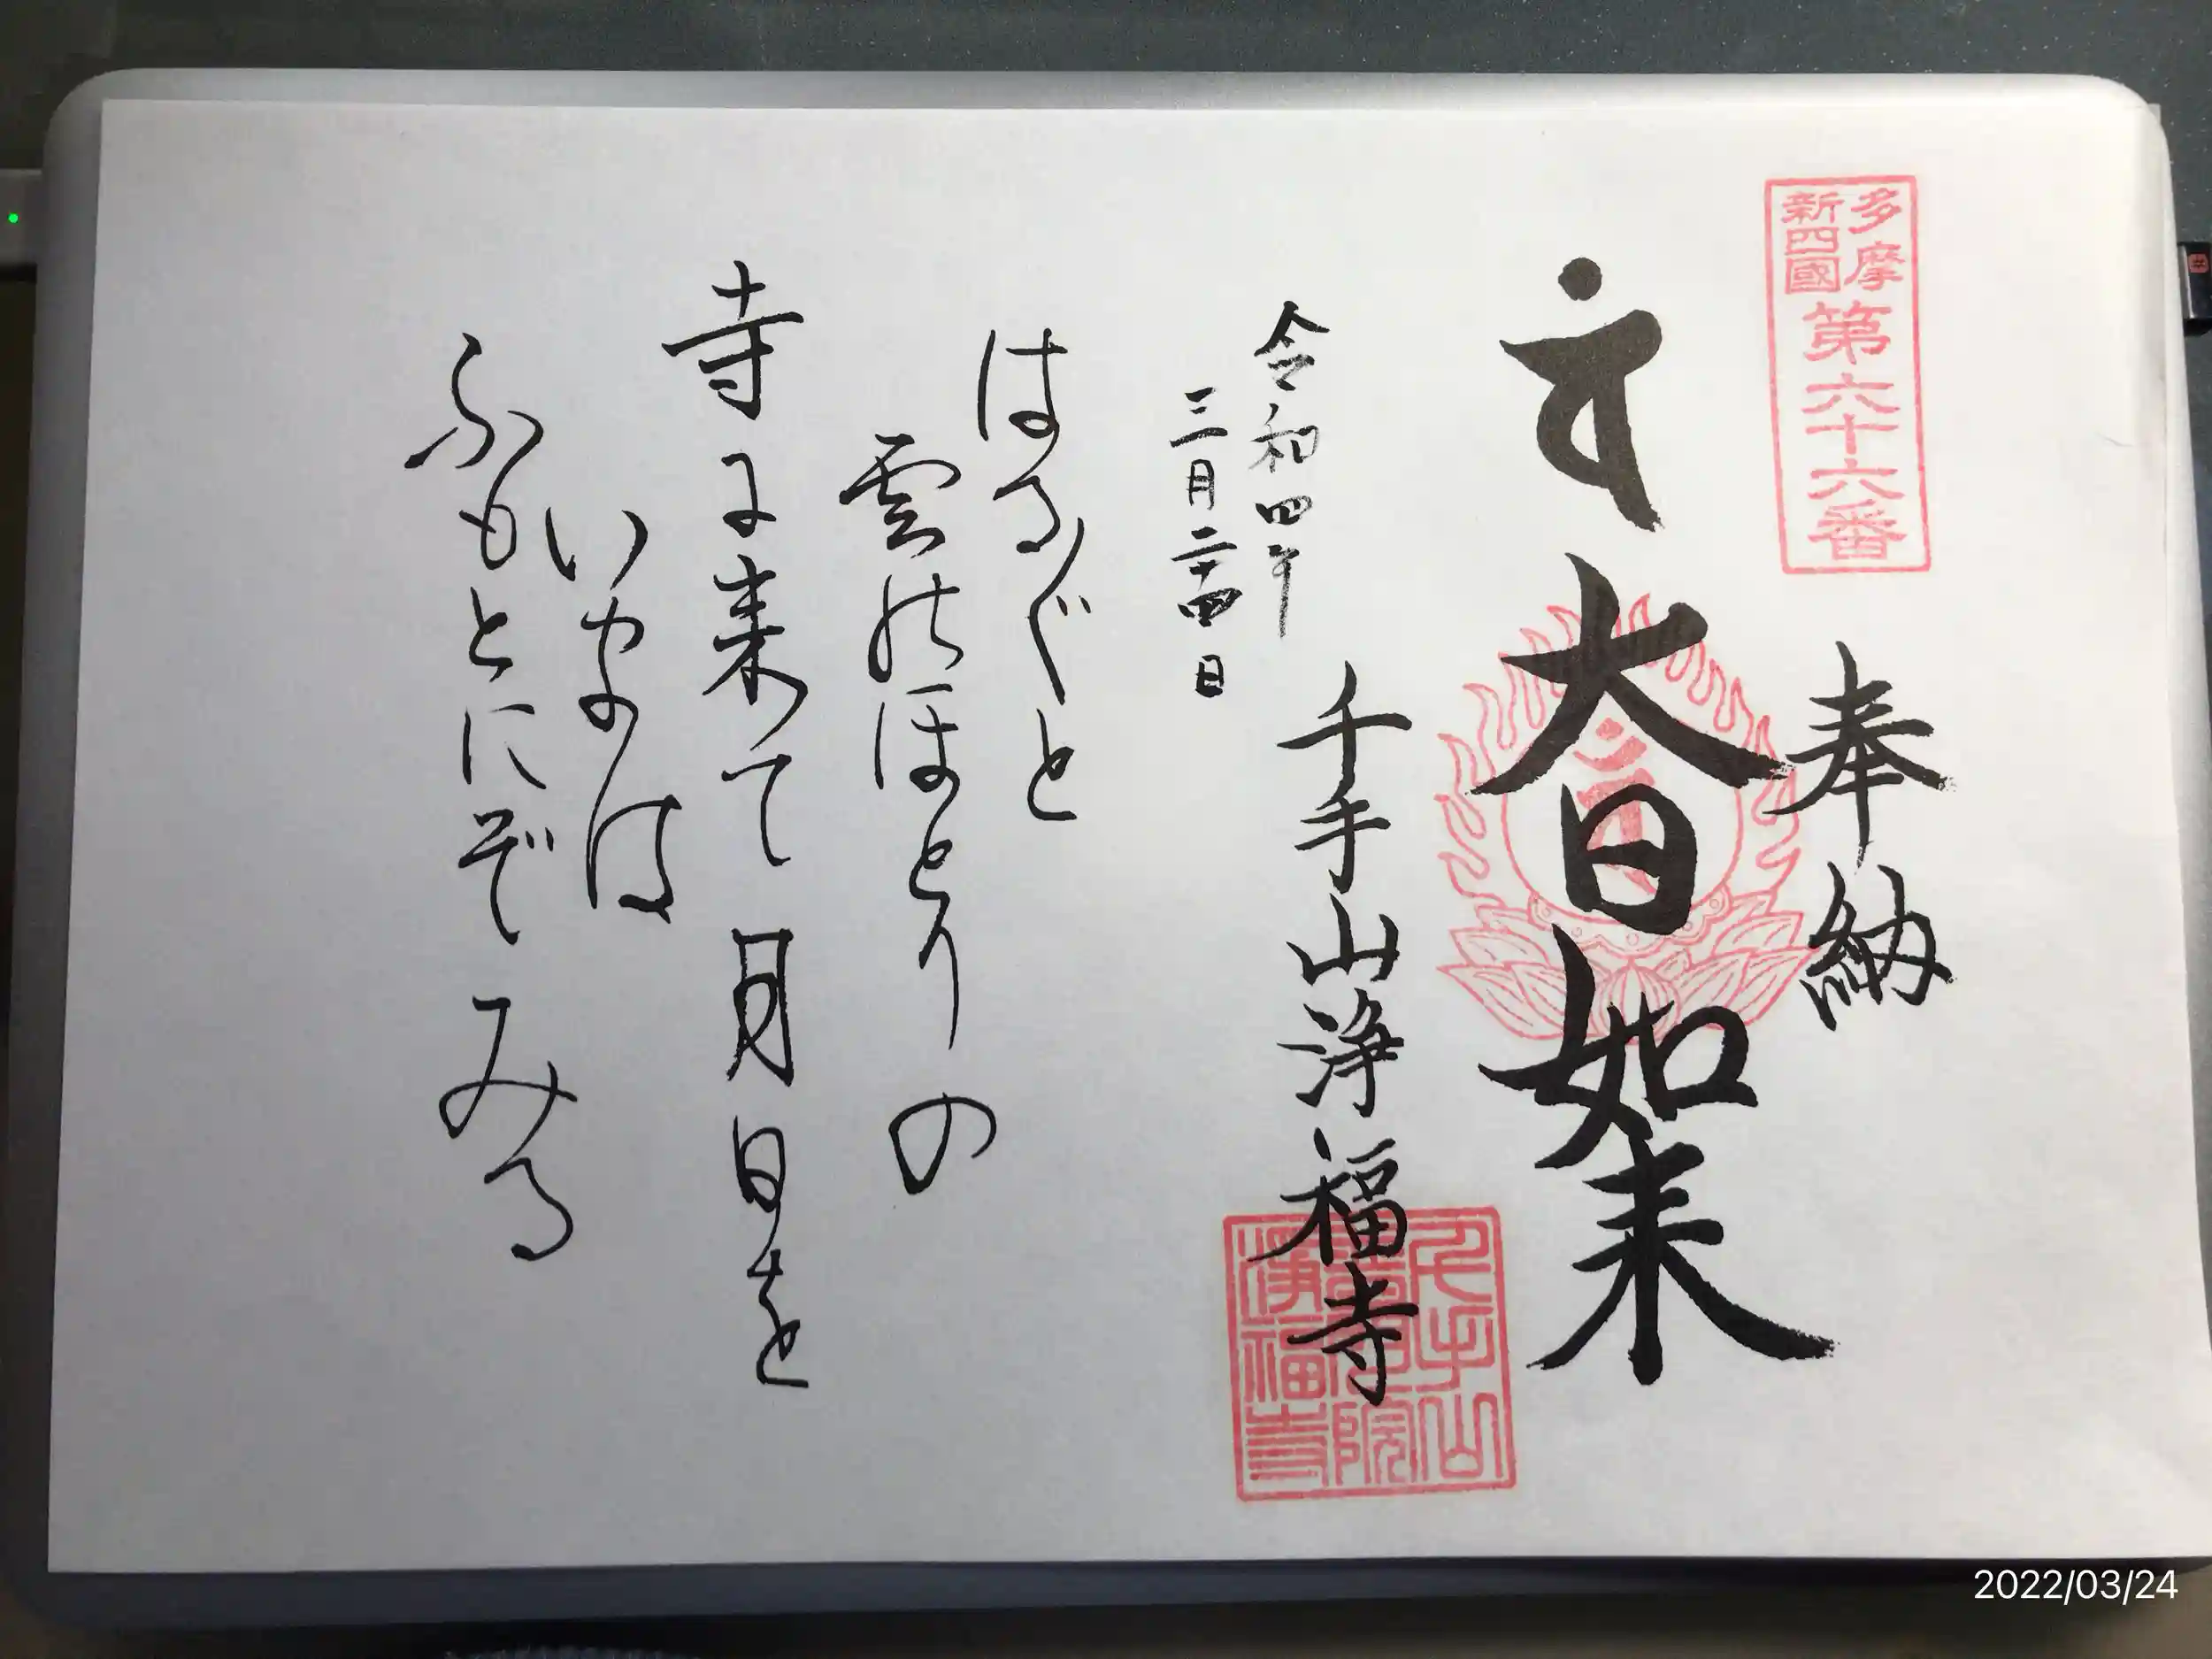 多摩
新四國
第六十六番
奉納
大日如来
千手山浄福寺
千手山
浄福寺
令和四年
三月二十四日
はる〲と
雲のほとりの
寺に来て月日を
いまは
ふもとにぞみる
2022/03/24